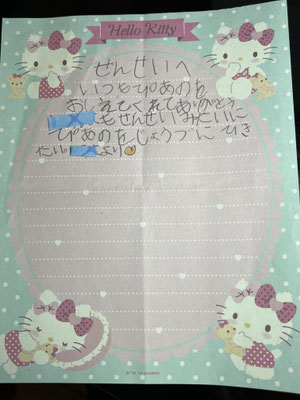 Hello Kitty
せんせいへ
いつもぴあのを
おしえてくれてありがとう
もせんせいみたいに
ぴあのをじょうづにひき
たいより